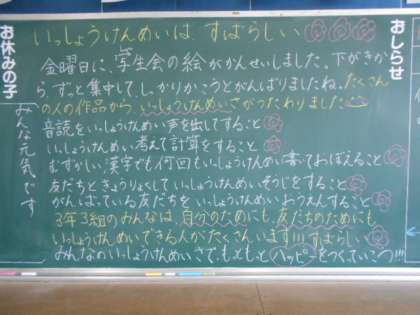 おしらせ
いっしょうけんめいは、すばらしい
金曜日に、写生会の絵がかんせいしました。下がきか
ら、ずっと集中して、しっかりかこうとがんばりましたね。たくさん
の人の作品から、いっしょうけんめいさがつたわりました
音読をいっしょうけんめい声を出してすること
いっしょうけんめい考えて計算をすること
むずかしい漢字でも何回もいっしょうけんめい書いておぼえること
友だちときょうりょくしていっしょうけんめいそうじをすること
がんばっている友だちをいっしょうけんめいおうえんすること
3年3組のみんなは、自分のためにも、友だちのためにも
いっしょうけんめいできる人がたくさんいます!!!すばらしい
みんなのいっしょうけんめいさで、もっともっとハッピーをつくっていこう!!!
お休みの子
みんな元気です